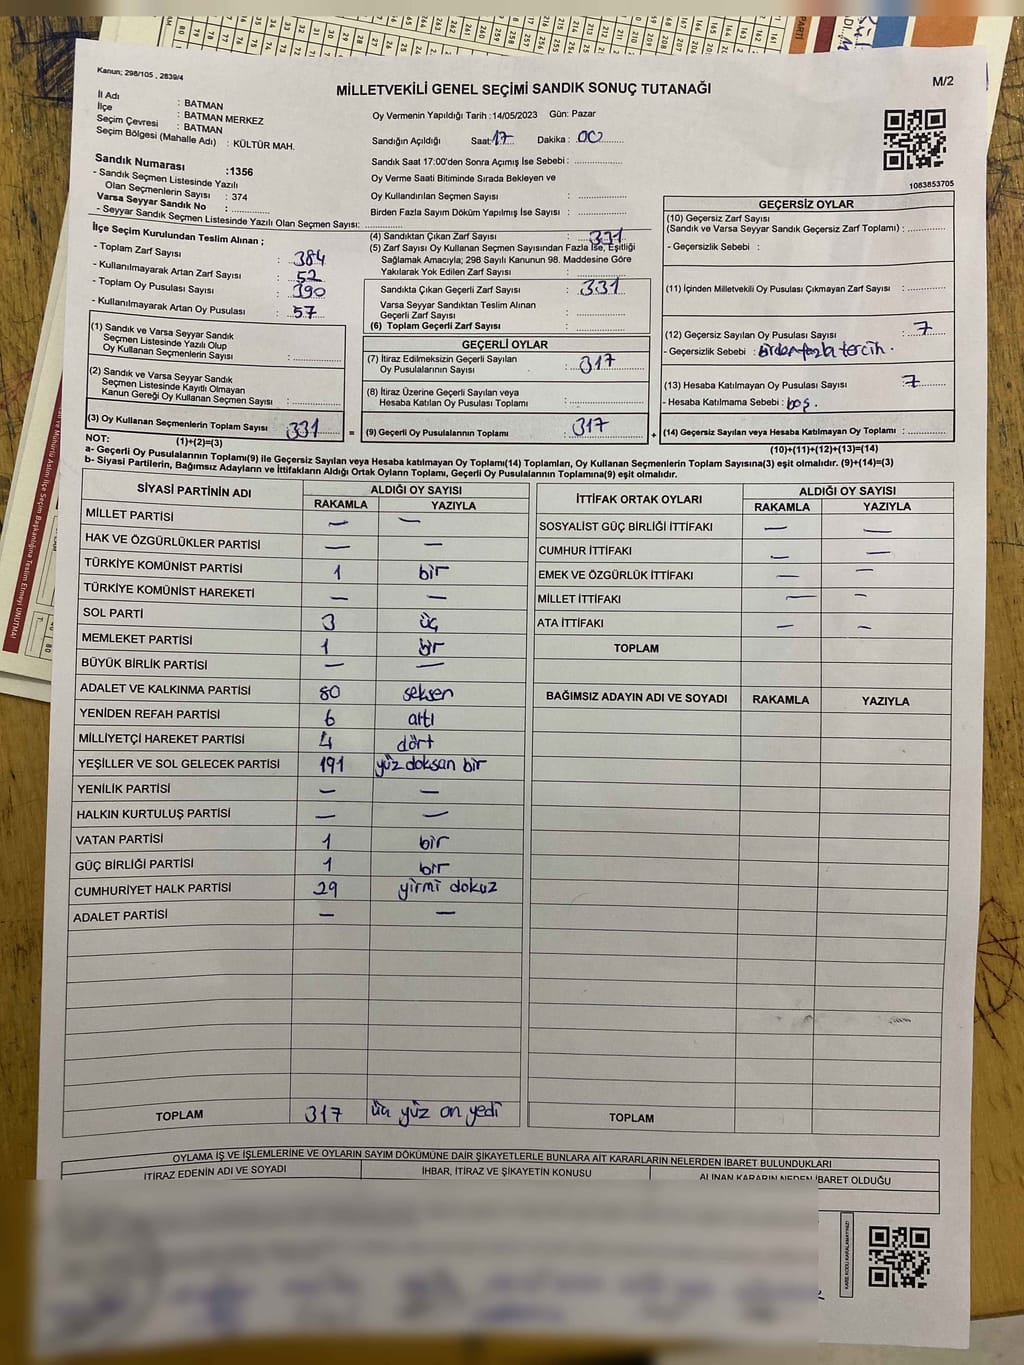 Kanun; 298/105 , 2839/4
MİLLETVEKİLİ GENEL SEÇİMİ SANDIK SONUÇ TUTANAĞI
M/2
İl Adı : BATMAN
İlçe : BATMAN MERKEZ
Seçim Çevresi : BATMAN
Seçim Bölgesi (Mahalle Adı) : KÜLTÜR MAH.
Oy Vermenin Yapıldığı Tarih :14/05/2023 Gün: Pazar
Sandığın Açıldığı Saat: 17 Dakika : 00
Sandık Saat 17:00'den Sonra Açımış İse Sebebi :
Oy Verme Saati Bitiminde Sırada Bekleyen ve
Oy Kullandırılan Seçmen Sayısı :
Birden Fazla Sayım Döküm Yapılmış İse Sayısı :
1083853705
Sandık Numarası :1356
- Sandık Seçmen Listesinde Yazılı
Olan Seçmenlerin Sayısı : 374
Varsa Seyyar Sandık No :
- Seyyar Sandık Seçmen Listesinde Yazılı Olan Seçmen Sayısı:
İlçe Seçim Kurulundan Teslim Alınan ;
- Toplam Zarf Sayısı : 384
- Kullanılmayarak Artan Zarf Sayısı : 52
- Toplam Oy Pusulası Sayısı : 390
- Kullanılmayarak Artan Oy Pusulası : 57
(1) Sandık ve Varsa Seyyar Sandık
Seçmen Listesinde Yazılı Olup
Oy Kullanan Seçmenlerin Sayısı :
(2) Sandık ve Varsa Seyyar Sandık
Seçmen Listesinde Kayıtlı Olmayan
Kanun Gereği Oy Kullanan Seçmen Sayısı :
(3) Oy Kullanan Seçmenlerin Toplam Sayısı 331 =
(4) Sandıktan Çıkan Zarf Sayısı : 331
(5) Zarf Sayısı Oy Kullanan Seçmen Sayısından Fazla İse, Eşitliği
Sağlamak Amacıyla; 298 Sayılı Kanunun 98. Maddesine Göre
Yakılarak Yok Edilen Zarf Sayısı :
Sandıkta Çıkan Geçerli Zarf Sayısı : 331
Varsa Seyyar Sandıktan Teslim Alınan
Geçerli Zarf Sayısı :
(6) Toplam Geçerli Zarf Sayısı :
GEÇERLİ OYLAR
(7) İtiraz Edilmeksizin Geçerli Sayılan
Oy Pusulalarının Sayısı : 317
(8) İtiraz Üzerine Geçerli Sayılan veya
Hesaba Katılan Oy Pusulası Toplamı :
(9) Geçerli Oy Pusulalarının Toplamı : 317 +
GEÇERSİZ OYLAR
(10) Geçersiz Zarf Sayısı
(Sandık ve Varsa Seyyar Sandık Geçersiz Zarf Toplamı) :
- Geçersizlik Sebebi :
(11) İçinden Milletvekili Oy Pusulası Çıkmayan Zarf Sayısı :
(12) Geçersiz Sayılan Oy Pusulası Sayısı : 7
- Geçersizlik Sebebi : Birden fazla tercih.
(13) Hesaba Katılmayan Oy Pusulası Sayısı : 7
- Hesaba Katılmama Sebebi : boş.
(14) Geçersiz Sayılan veya Hesaba Katılmayan Oy Toplamı :
NOT: (1)+(2)=(3)
(10)+(11)+(12)+(13)=(14)
a- Geçerli Oy Pusulasının Toplamı(9) ile Geçersiz Sayılan veya Hesaba katılmayan Oy Toplamı(14) Toplamları, Oy Kullanan Seçmenlerin Toplam Sayısına(3) eşit olmalıdır. (9)+(14)=(3)
b- Siyasi Partilerin, Bağımsız Adayların ve İttifakların Aldığı Ortak Oyların Toplamı, Geçerli Oy Pusulalarının Toplamına(9) eşit olmalıdır.
SİYASİ PARTİNİN ADI ALDIĞI OY SAYISI
RAKAMLA YAZIYLA
MİLLET PARTİSİ — —
HAK VE ÖZGÜRLÜKLER PARTİSİ — —
TÜRKİYE KOMÜNİST PARTİSİ 1 bir
TÜRKİYE KOMÜNİST HAREKETİ — —
SOL PARTİ 3 üç
MEMLEKET PARTİSİ 1 bir
BÜYÜK BİRLİK PARTİSİ — —
ADALET VE KALKINMA PARTİSİ 80 seksen
YENİDEN REFAH PARTİSİ 6 altı
MİLLİYETÇİ HAREKET PARTİSİ 4 dört
YEŞİLLER VE SOL GELECEK PARTİSİ 191 yüz doksan bir
YENİLİK PARTİSİ — —
HALKIN KURTULUŞ PARTİSİ — —
VATAN PARTİSİ 1 bir
GÜÇ BİRLİĞİ PARTİSİ 1 bir
CUMHURİYET HALK PARTİSİ 29 yirmi dokuz
ADALET PARTİSİ — —
TOPLAM 317 üç yüz on yedi
İTTİFAK ORTAK OYLARI ALDIĞI OY SAYISI
RAKAMLA YAZIYLA
SOSYALİST GÜÇ BİRLİĞİ İTTİFAKI — —
CUMHUR İTTİFAKI — —
EMEK VE ÖZGÜRLÜK İTTİFAKI — —
MİLLET İTTİFAKI — —
ATA İTTİFAKI — —
TOPLAM
BAĞIMSIZ ADAYIN ADI VE SOYADI RAKAMLA YAZIYLA
TOPLAM
OYLAMA İŞ VE İŞLEMLERİNE VE OYLARIN SAYIM DÖKÜMÜNE DAİR ŞİKAYETLERLE BUNLARA AİT KARARLARIN NELERDEN İBARET BULUNDUKLARI
İTİRAZ EDENİN ADI VE SOYADI İHBAR, İTİRAZ VE ŞİKAYETİN KONUSU ALINAN KARARIN NEDEN İBARET OLDUĞU